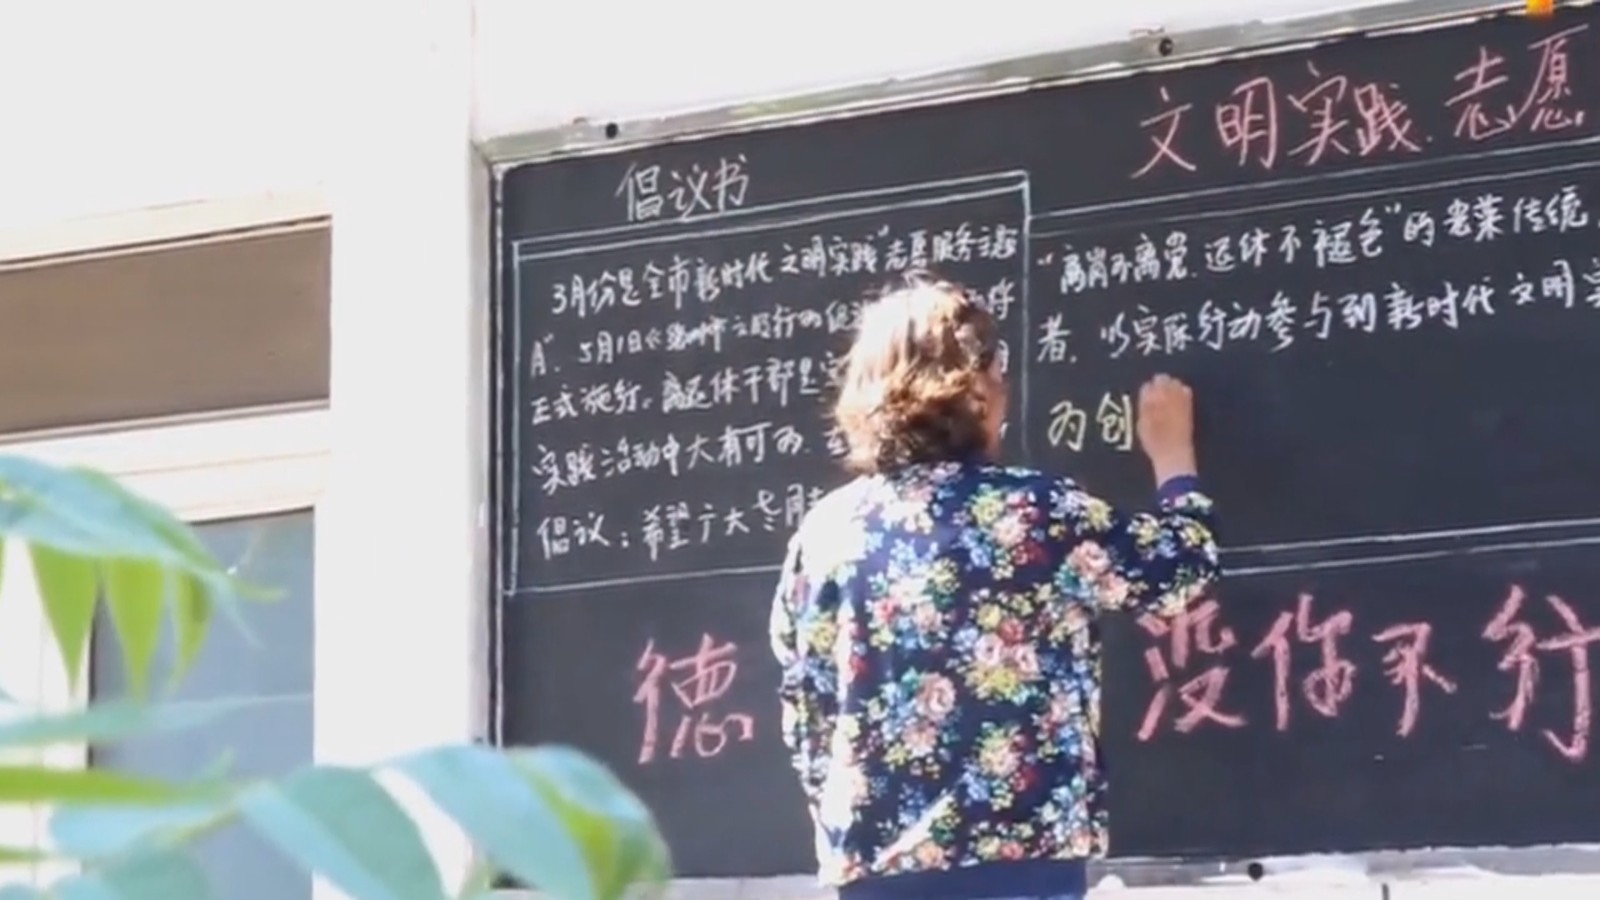 文明实践 志愿
倡议书
3月份是全市新时代"文明实践"志愿服务主题
月". 5月1日《
正式施行。离退休干部是
实践活动中大有可为.
倡议：希望广大
"离岗不离党.退休不褪色"的光荣传统.
者. 以实际行动参与到新时代文明实
为创
德 没你不行